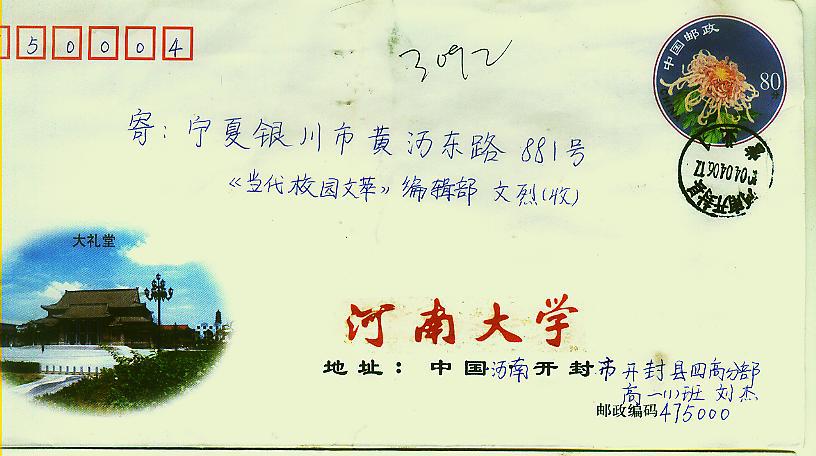 50004
3092
中国邮政
80分
寄：宁夏银川市黄河东路881号
《当代校园文萃》编辑部 文烈(收)
河南开封县
04.04.06.17
大礼堂
河南大学
地址：中国河南开封市开封县四高分部
高一(1)班 刘杰
邮政编码475000